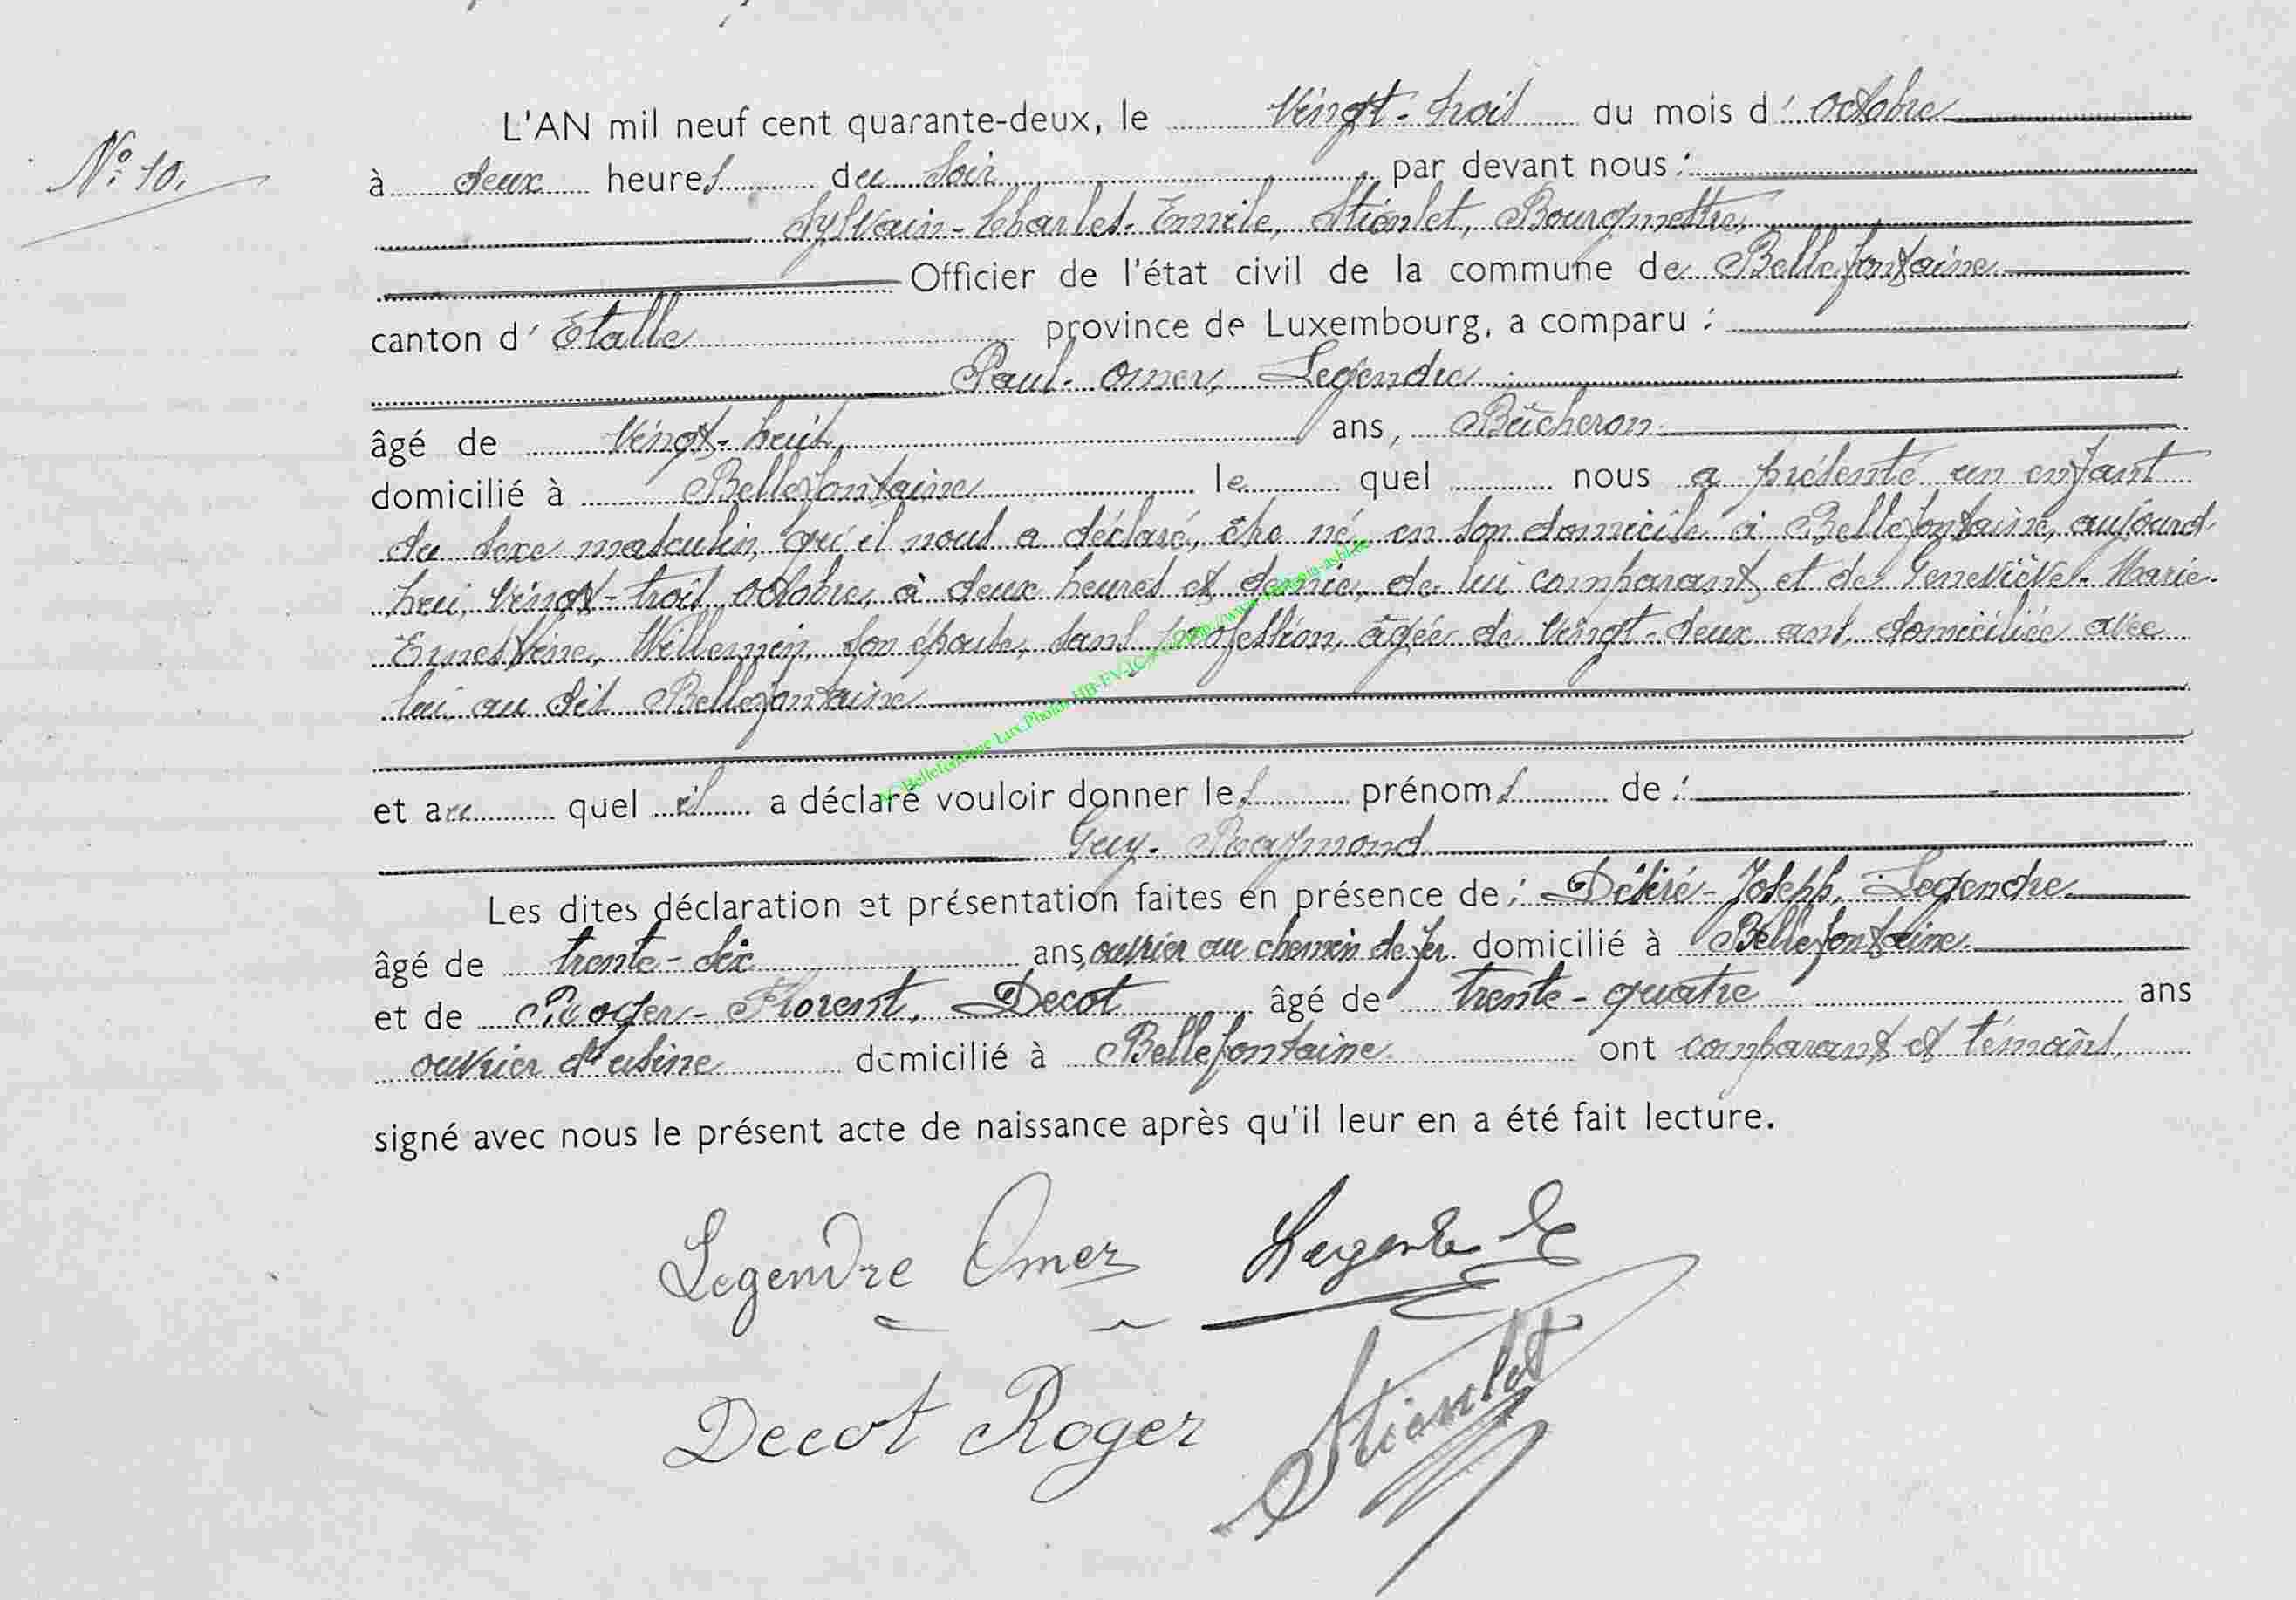 L'AN mil neuf cent quarante-deux, le Vingt-trois du mois d' Octobre
N° 10.
à deux heures du soir par devant nous :
Sylvain-Charles-Emile, Stienlet, Bourgmestre,
Officier de l'état civil de la commune de Bellefontaine
canton d' Etalle province de Luxembourg, a comparu :
Paul-Omer, Legendre
âgé de Vingt-huit ans, Bûcheron
domicilié à Bellefontaine le quel nous a présenté un enfant
du sexe masculin, qu'il nous a déclaré, être né en son domicile à Bellefontaine, aujourd-
hui, Vingt-trois octobre, à deux heures et demie, de lui comparant et de Geneviève-Marie-
Ernestine, Willemin, son épouse, sans profession, âgée de Vingt-deux ans, domiciliée avec
lui au dit Bellefontaine
et au quel il a déclaré vouloir donner les prénoms de :
Guy-Raymond
Les dites déclaration et présentation faites en présence de : Désiré-Joseph, Legendre
âgé de trente-six ans, ouvrier au chemin de fer domicilié à Bellefontaine
et de Roger-Florent, Decot âgé de trente-quatre ans
ouvrier d'usine domicilié à Bellefontaine ont comparant et témoins,
signé avec nous le présent acte de naissance après qu'il leur en a été fait lecture.
Legendre Omer Legendre
Decot Roger Stienlet